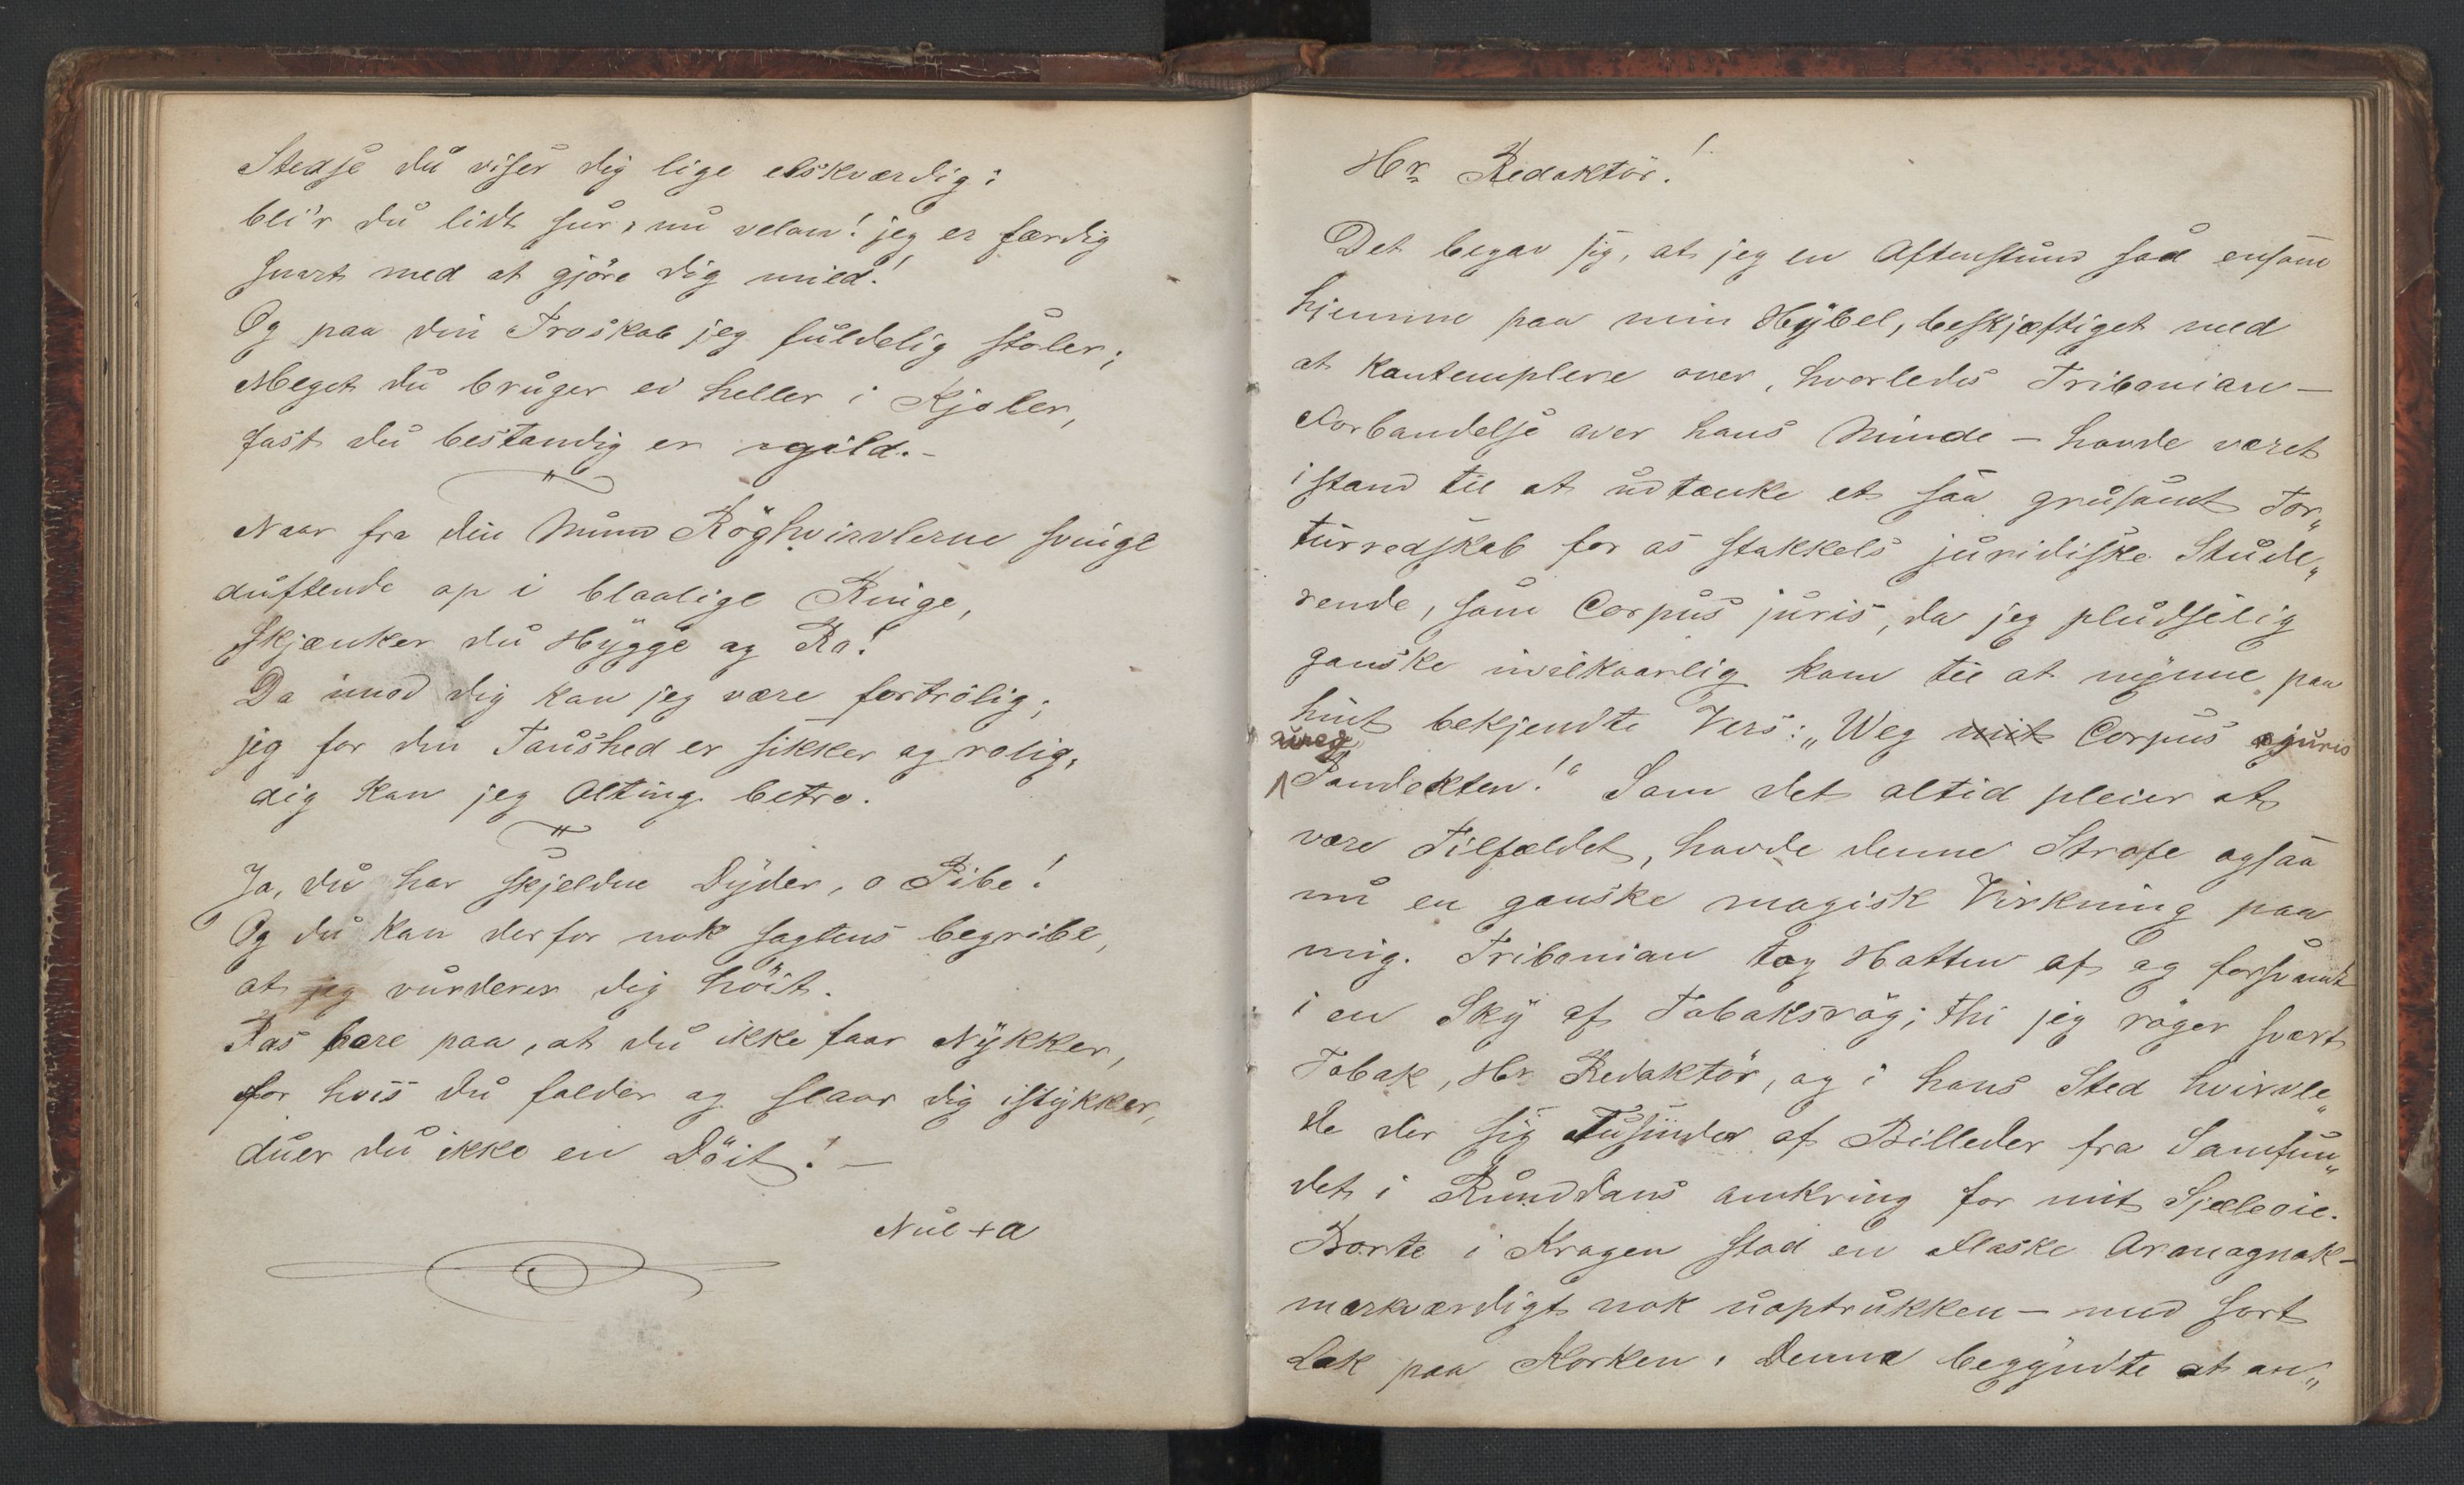 Stedse du viser dig lige elskværdig;
bli'r du lidt sur, nu velan! jeg er færdig
snart med at gjöre dig mild!
Og paa din Troskab jeg fuldelig stoler;
Meget du bruger ei heller i Kjoler,
fast du bestandig er gild. –
Naar fra din Mund Röghvirvlerne svinge
duftende op i blaalige Ringe,
skjænker du Hygge og Ro!
Da imod dig kan jeg være fortrolig;
jeg for din Taushed er sikker og rolig,
dig kan jeg Alting betro.
Ja, du har skjeldne Dyder, o Pibe!
Og du kan derfor nok sagtens begribe,
at jeg vurderer dig höit.
Pas bare paa, at du ikke faar Nykker,
for hvis du falder og slaar dig istykker,
duer du ikke en Döit! –
Nul + a
Hr Redaktör!
Det begav sig, at jeg en Aftenstund sad ensom
hjemme paa min Hybel, beskjæftiget med
at kontemplere over, hvorledes Tribonian –
Forbandelse over hans Minde – havde været
istand til at udtænke et saa grusomt Tor„
turredskab for os stakkels juridiske Stude„
rende, som Corpus juris, da jeg pludselig
ganske uvilkaarlig kom til at nynne paa
hint bekjendte Vers: „Weg mit Corpus juris
Pandekten!" Som det altid pleier at
være Tilfældet, havde denne Strofe ogsaa
nu en ganske magisk Virkning paa
mig. Tribonian tog Hatten af og forsvandt
i en Sky af Tobaksrög; thi jeg röger svært
Tobak, Hr. Redaktör, og i hans Sted hvirvle„
de der sig Tusinder af Billeder fra Samfun„
det i Runddans omkring for mit Sjæleöie.
Borte i Krogen stod en Flaske Aromagnak –
mærkværdigt nok uoptrukken – med sort
Lak paa Korken. Denne begyndte at an„